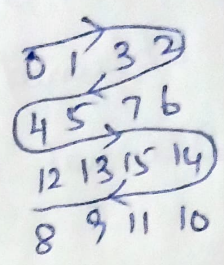 0 1 3 2
4 5 7 6
12 13 15 14
8 9 11 10